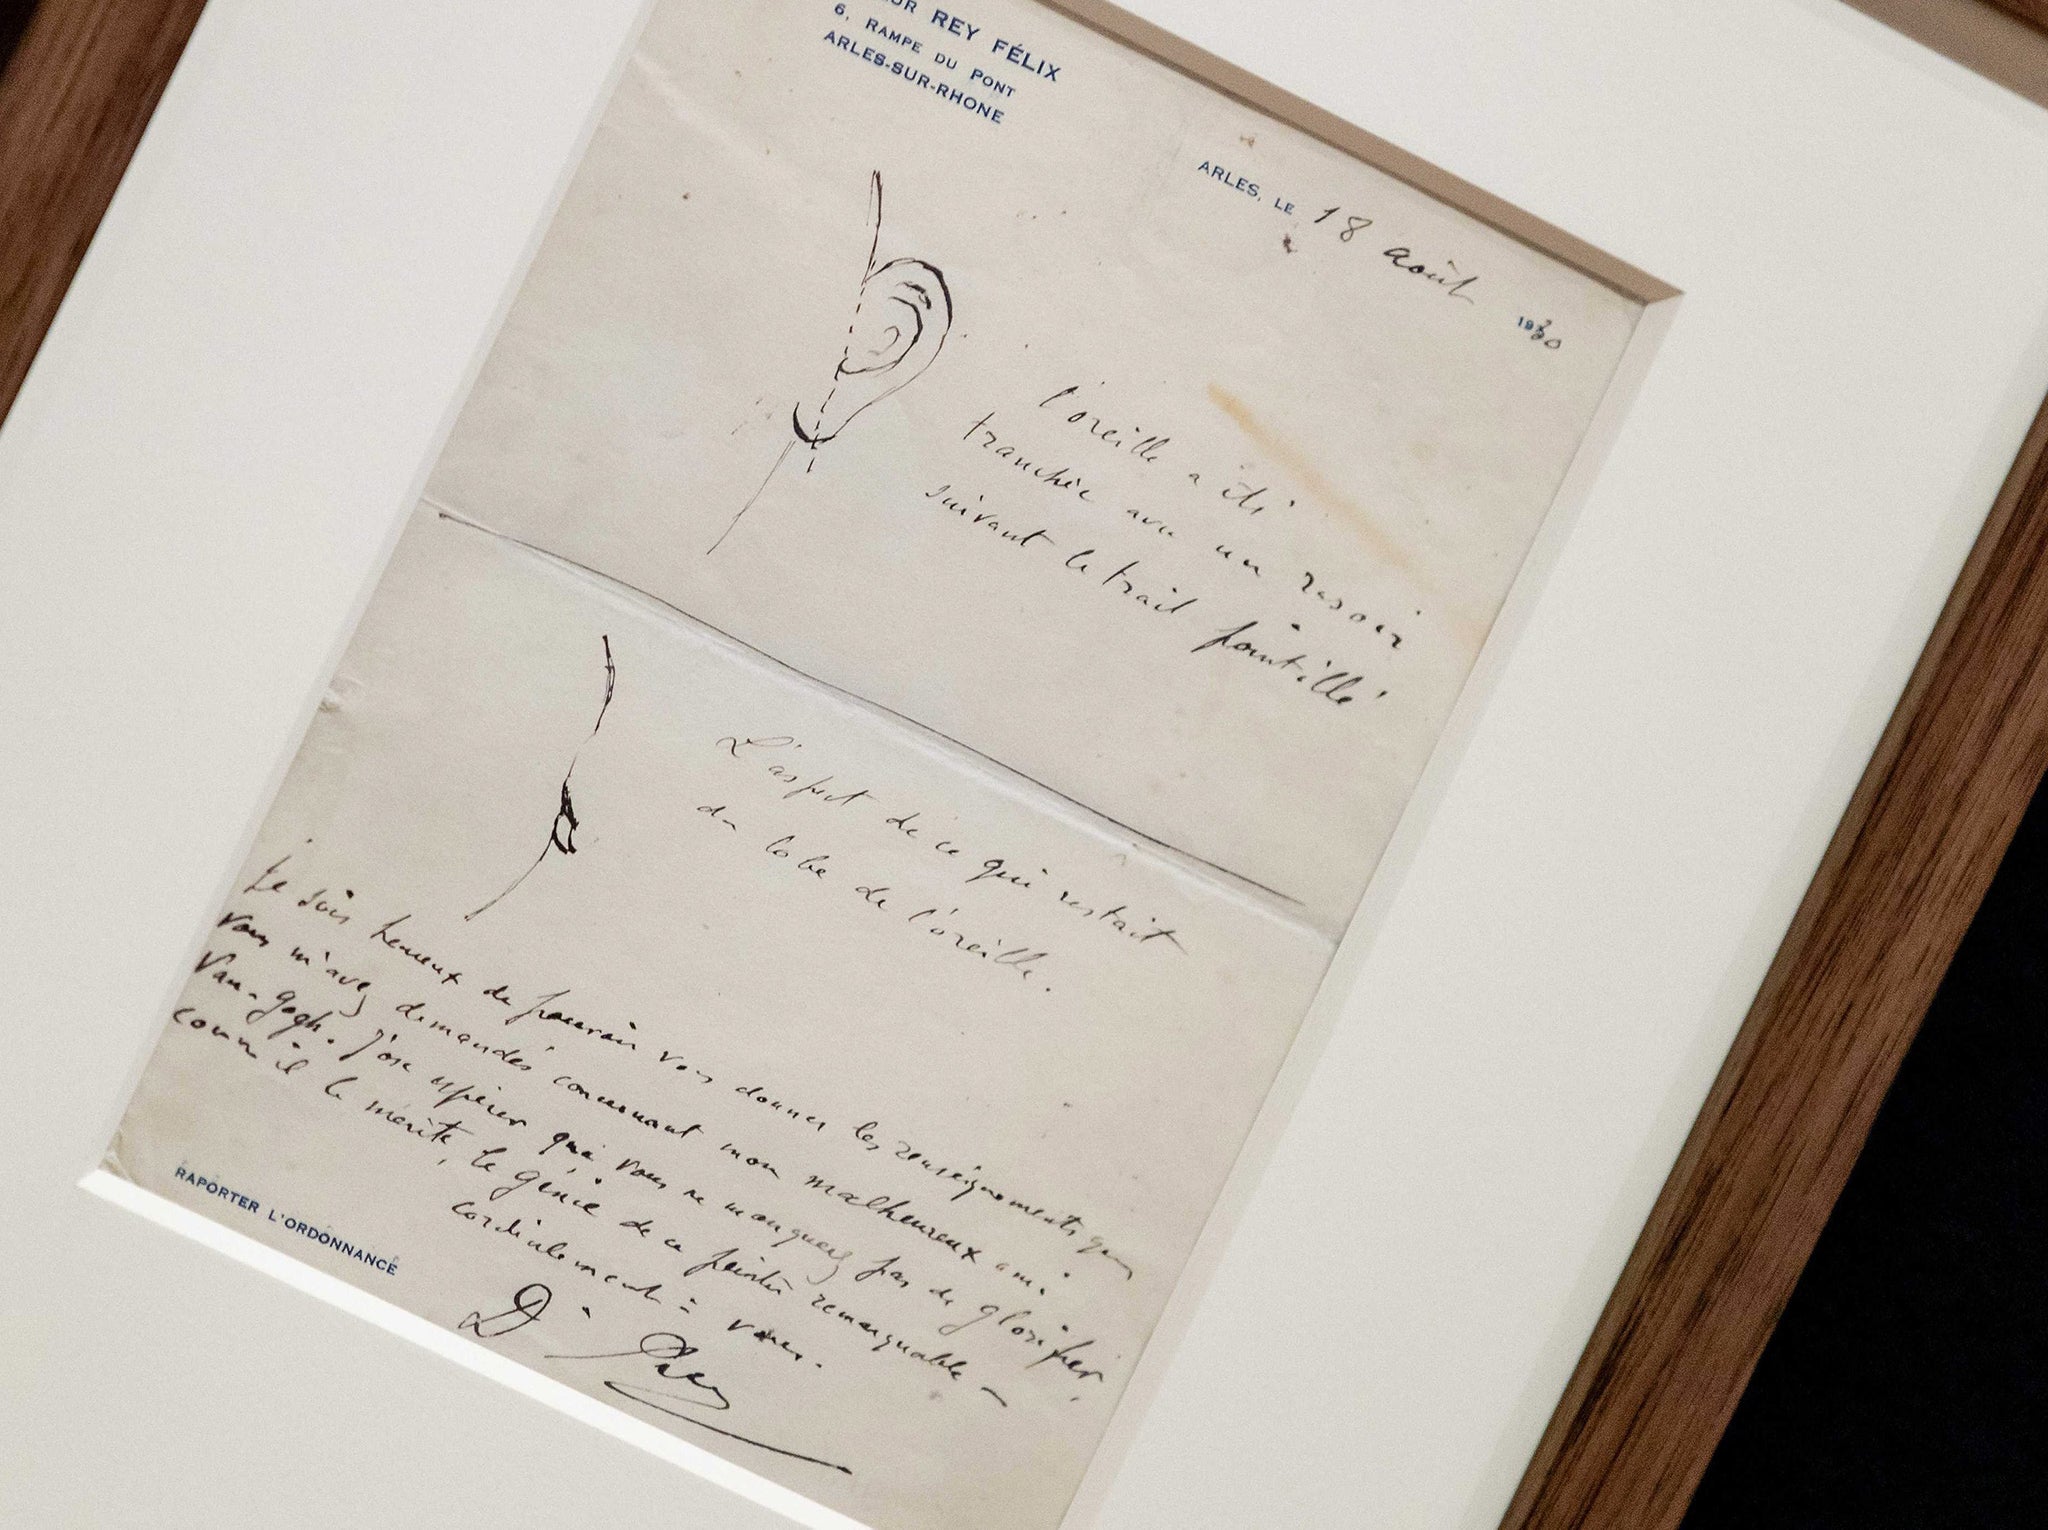 REY FÉLIX
6, RAMPE DU PONT
ARLES-SUR-RHONE
ARLES, LE 18 août 1930
l'oreille a été
tranchée avec un rasoir
suivant le trait pointillé
L'aspect de ce qui restait
du lobe de l'oreille.
Je suis heureux de pouvoir vous donner les renseignements que
vous m'avez demandés concernant mon malheureux ami
Van-Gogh. J'ose espérer que vous ne manquerez pas de glorifier,
comme il le mérite, le génie de ce peintre remarquable –
cordialement à vous.
Dr Rey
RAPORTER L'ORDONNANCE